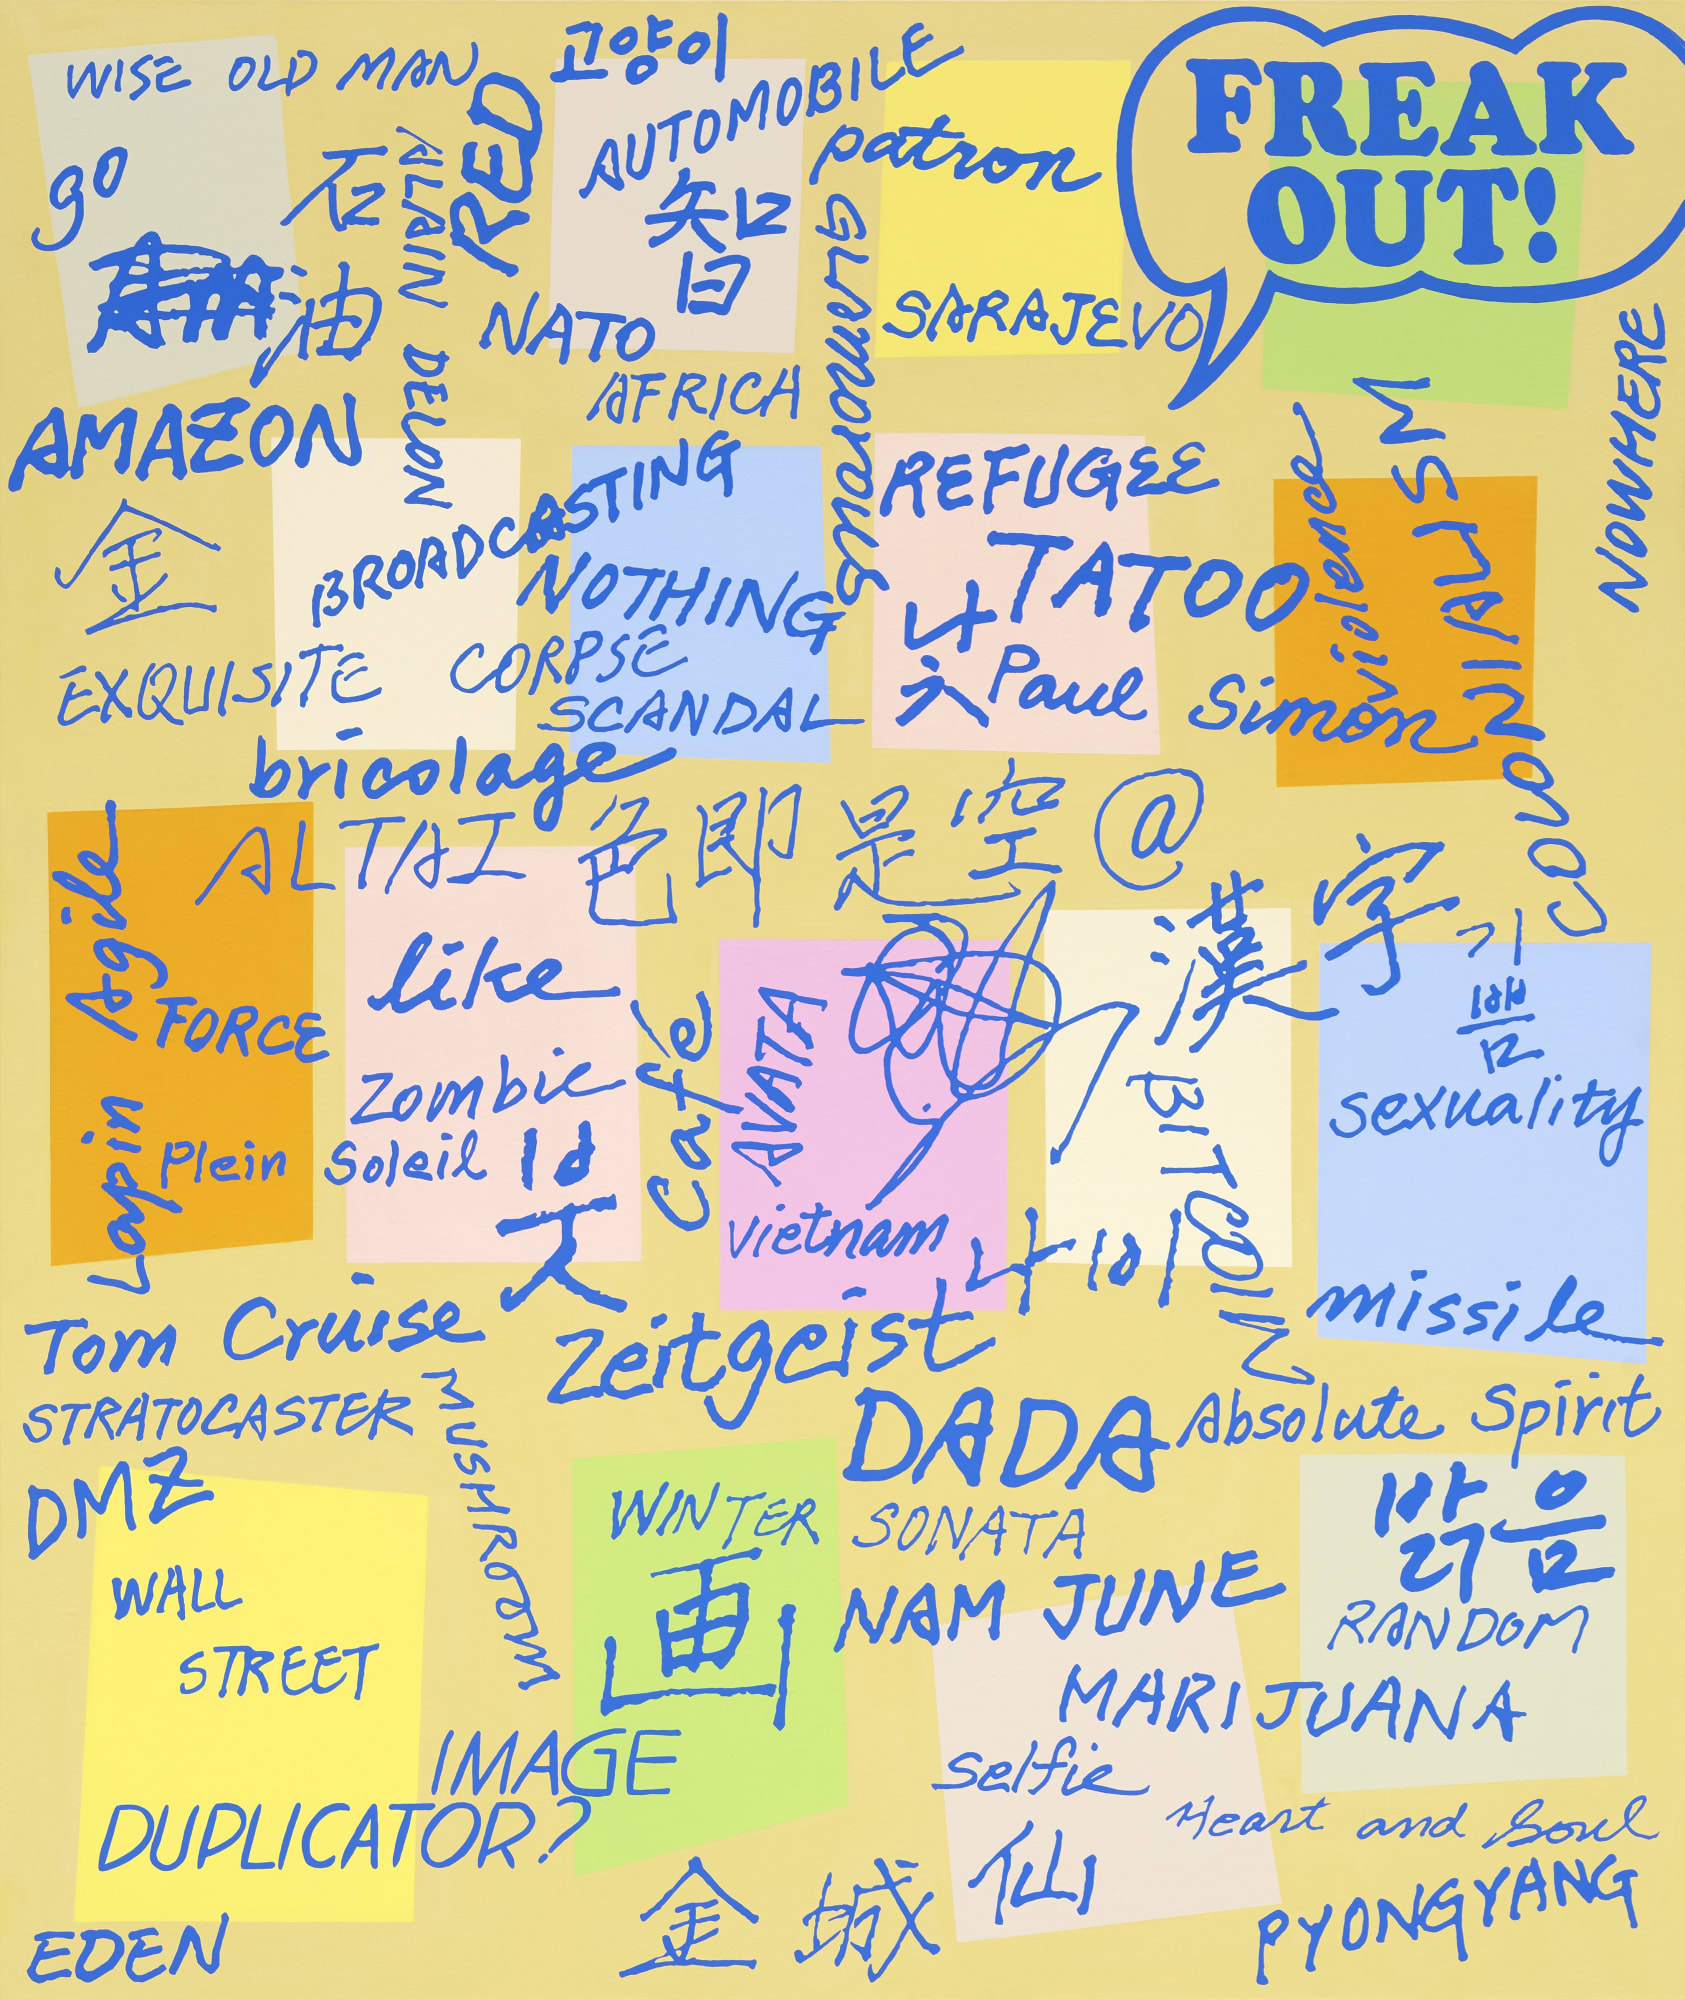 WISE OLD MAN
RED
고양이
AUTOMOBILE
FREAK
OUT!
go
石
油
ALAIN DELON
智
patron
glamorous
NATO
SARAJEVO
AFRICA
NOWHERE
AMAZON
BROADCASTING
REFUGEE
violence
COLONIALISM
金
NOTHING
TATOO
낫
EXQUISITE CORPSE
SCANDAL
Paul Simon
bricolage
ALTAI
色即是空
@
漢字
기쁨
Lapin Agile
like
FORCE
Café
AVATA
BITCOIN
zombie
sexuality
Plein Soleil
낮
Vietnam
나비
missile
Tom Cruise
zeitgeist
STRATOCASTER
MUSHROOM
DADA
Absolute Spirit
DMZ
WINTER SONATA
밝음
WALL
STREET
画
NAM JUNE
RANDOM
MARIJUANA
IMAGE
DUPLICATOR?
selfie
仙
Heart and Soul
金城
PYONGYANG
EDEN